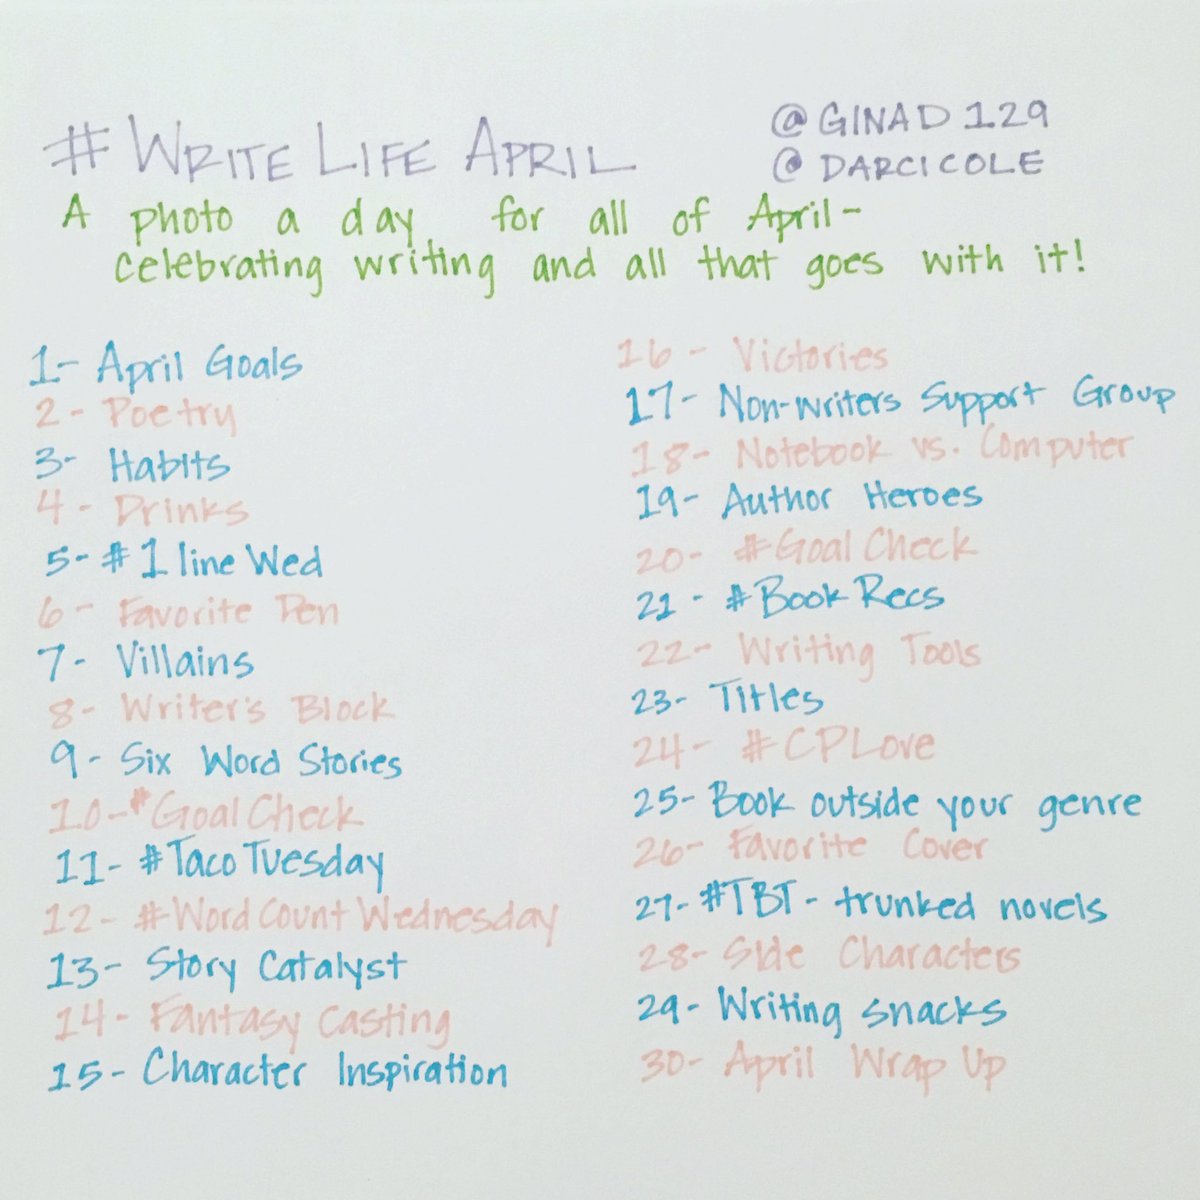 # WRITE LIFE APRIL
@GINAD129
@DARCICOLE
A photo a day for all of April-
celebrating writing and all that goes with it!
1- April Goals
2- Poetry
3- Habits
4- Drinks
5- #1lineWed
6- Favorite Pen
7- Villains
8- Writer's Block
9- Six Word Stories
10- #GoalCheck
11- #TacoTuesday
12- #WordCountWednesday
13- Story Catalyst
14- Fantasy Casting
15- Character Inspiration
16- Victories
17- Non-writers Support Group
18- Notebook vs. Computer
19- Author Heroes
20- #GoalCheck
21- #BookRecs
22- Writing Tools
23- Titles
24- #CPLove
25- Book outside your genre
26- Favorite Cover
27- #TBT- trunked novels
28- Side Characters
29- Writing snacks
30- April Wrap Up